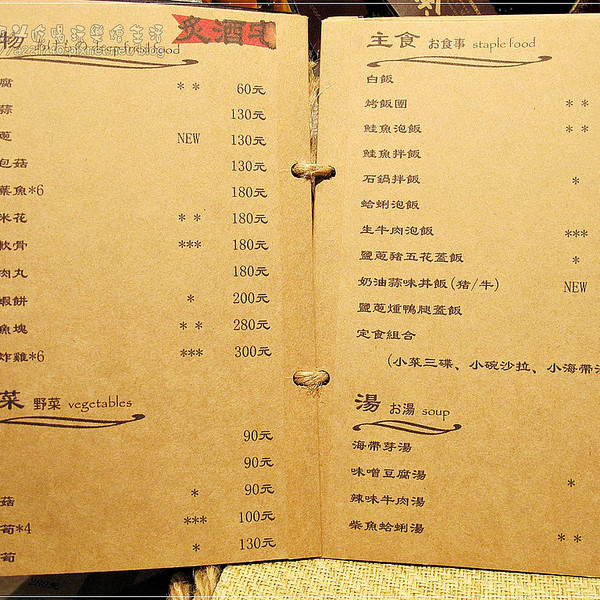 物
炙酒史
腐 ** 60元
蒜 130元
蔥 NEW 130元
包菇 130元
葉魚*6 180元
米花 ** 180元
軟骨 *** 180元
肉丸 180元
蝦餅 * 200元
魚塊 ** 280元
炸雞*6 *** 300元
菜 野菜 vegetables
90元
90元
菇 * 90元
筍*4 *** 100元
筍 * 130元
主食 お食事 staple food
白飯
烤飯團 **
鮭魚泡飯 **
鮭魚拌飯
石鍋拌飯 *
蛤蜊泡飯
生牛肉泡飯 ***
鹽蔥豬五花蓋飯 *
奶油蒜味丼飯(豬/牛) NEW
鹽蔥燻鴨腿蓋飯
定食組合
(小菜三碟、小碗沙拉、小海帶
湯 お湯 soup
海帶芽湯
味噌豆腐湯 *
辣味牛肉湯
柴魚蛤蜊湯 **